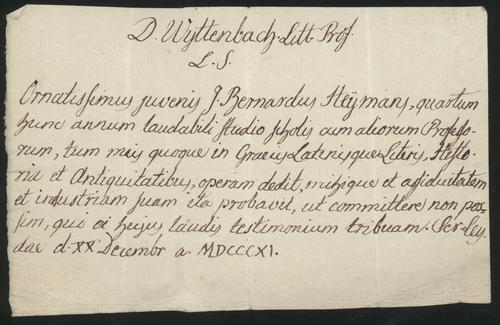 D. Wyttenbach Litt. Prof.
L. S.
Ornatissimus juvenis J. Bernardus Heÿmans, quartum
hunc annum laudabili studio scholis cum aliorum Professo-
rum, tum meis quoque in Graecis Latinisque Literis, Histo-
ria et Antiquitatibus, operam dedit, mihique et assiduitatem
et industriam suam ita probavit, ut committere non pos-
sim, qui ei hujus laudis testimonium tribuam. Scr. Ley-
dae d. XX Decembr a. MDCCCXI.